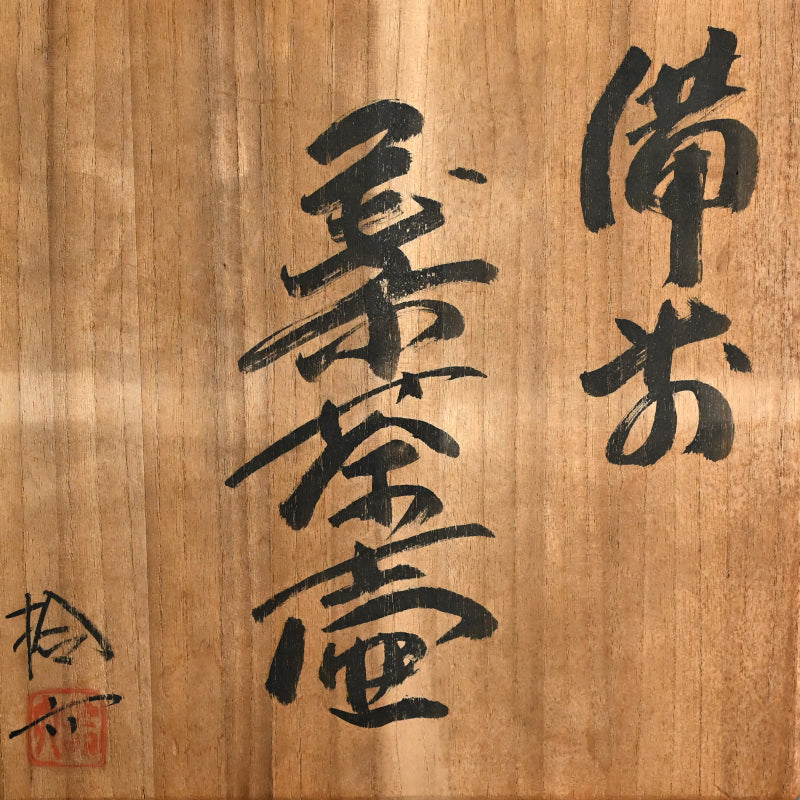 備前
葉茶壷
拾六